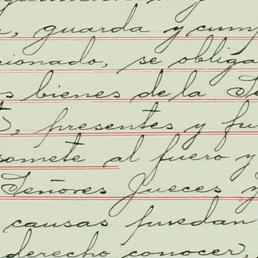 guarda y cump
cionado, se obliga
s bienes de la S
S, presentes y fu
somete al fuero y
Señores Jueces y
causas puedan
derecho conocer,